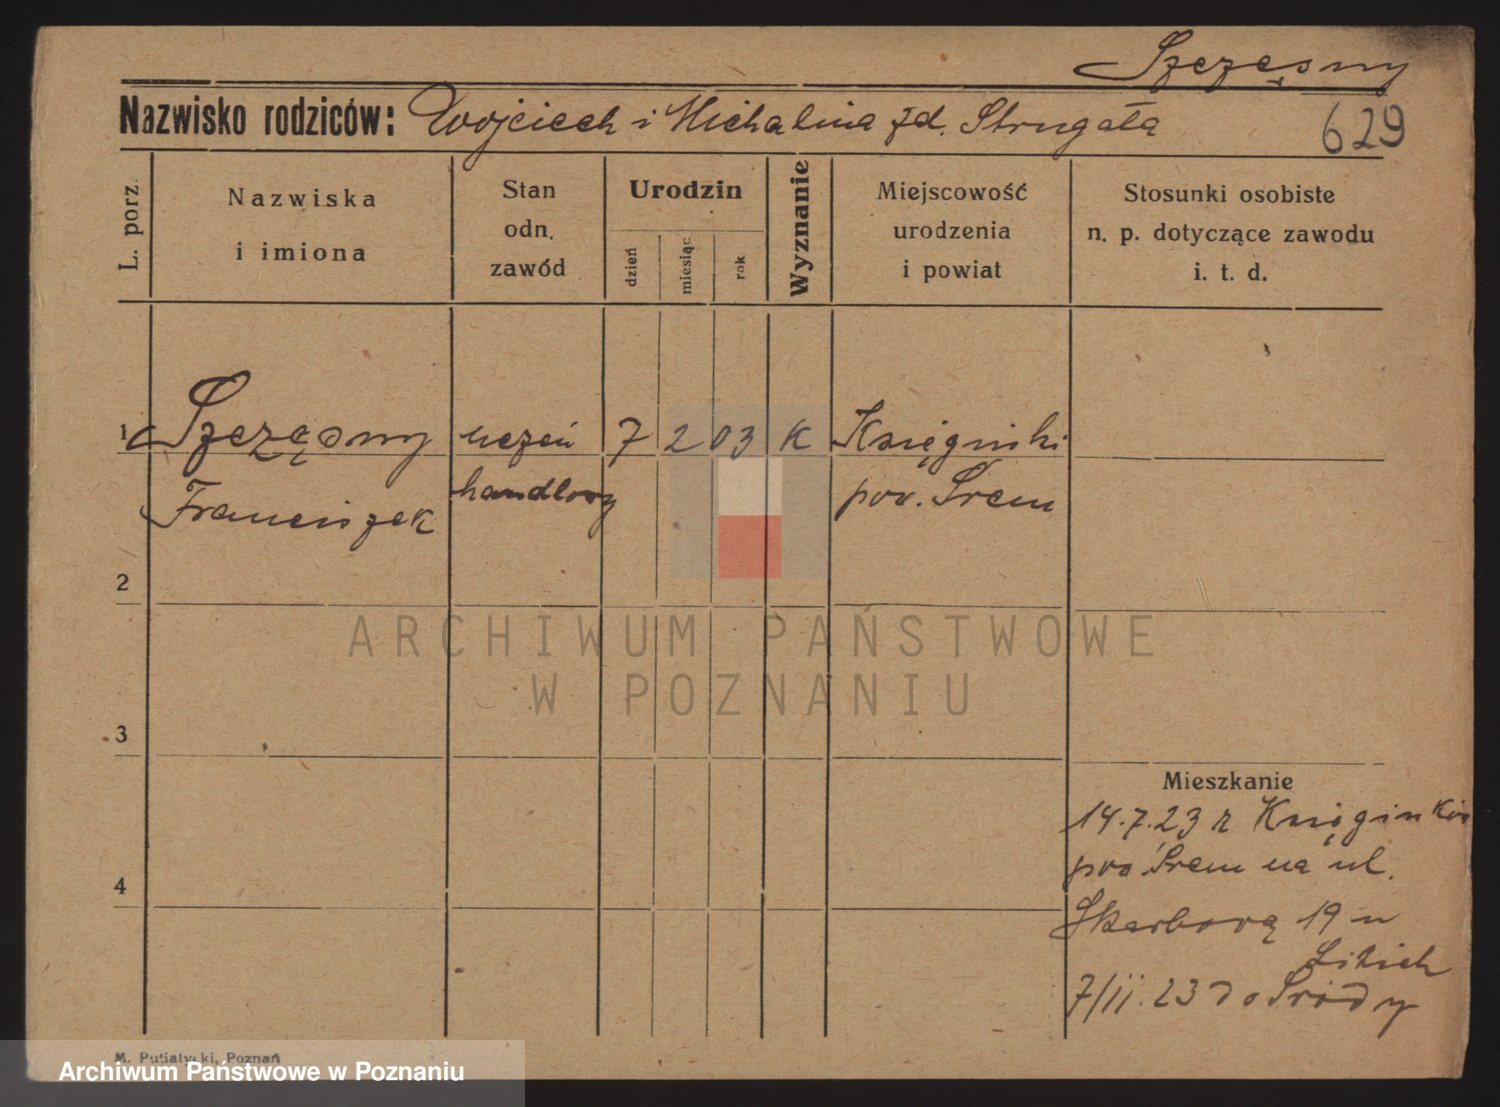 Szczęsny
Nazwisko rodziców: Wojciech i Michalina zd. Strugała
629
L. porz.
Nazwiska
i imiona
Stan
odn.
zawód
Urodzin
dzień
miesiąc
rok
Wyznanie
Miejscowość
urodzenia
i powiat
Stosunki osobiste
n. p. dotyczące zawodu
i. t. d.
1 Szczęsny uczeń 7 2 03 K Księginki
Franciszek handlowy pow. Śrem
2
3
4
ARCHIWUM PAŃSTWOWE
W POZNANIU
Mieszkanie
14.7.23 z Księginków
pow Śrem na ul.
Skarbową 19 u
7/11.23 do Środy
M. Putiatycki, Poznań
Archiwum Państwowe w Poznaniu